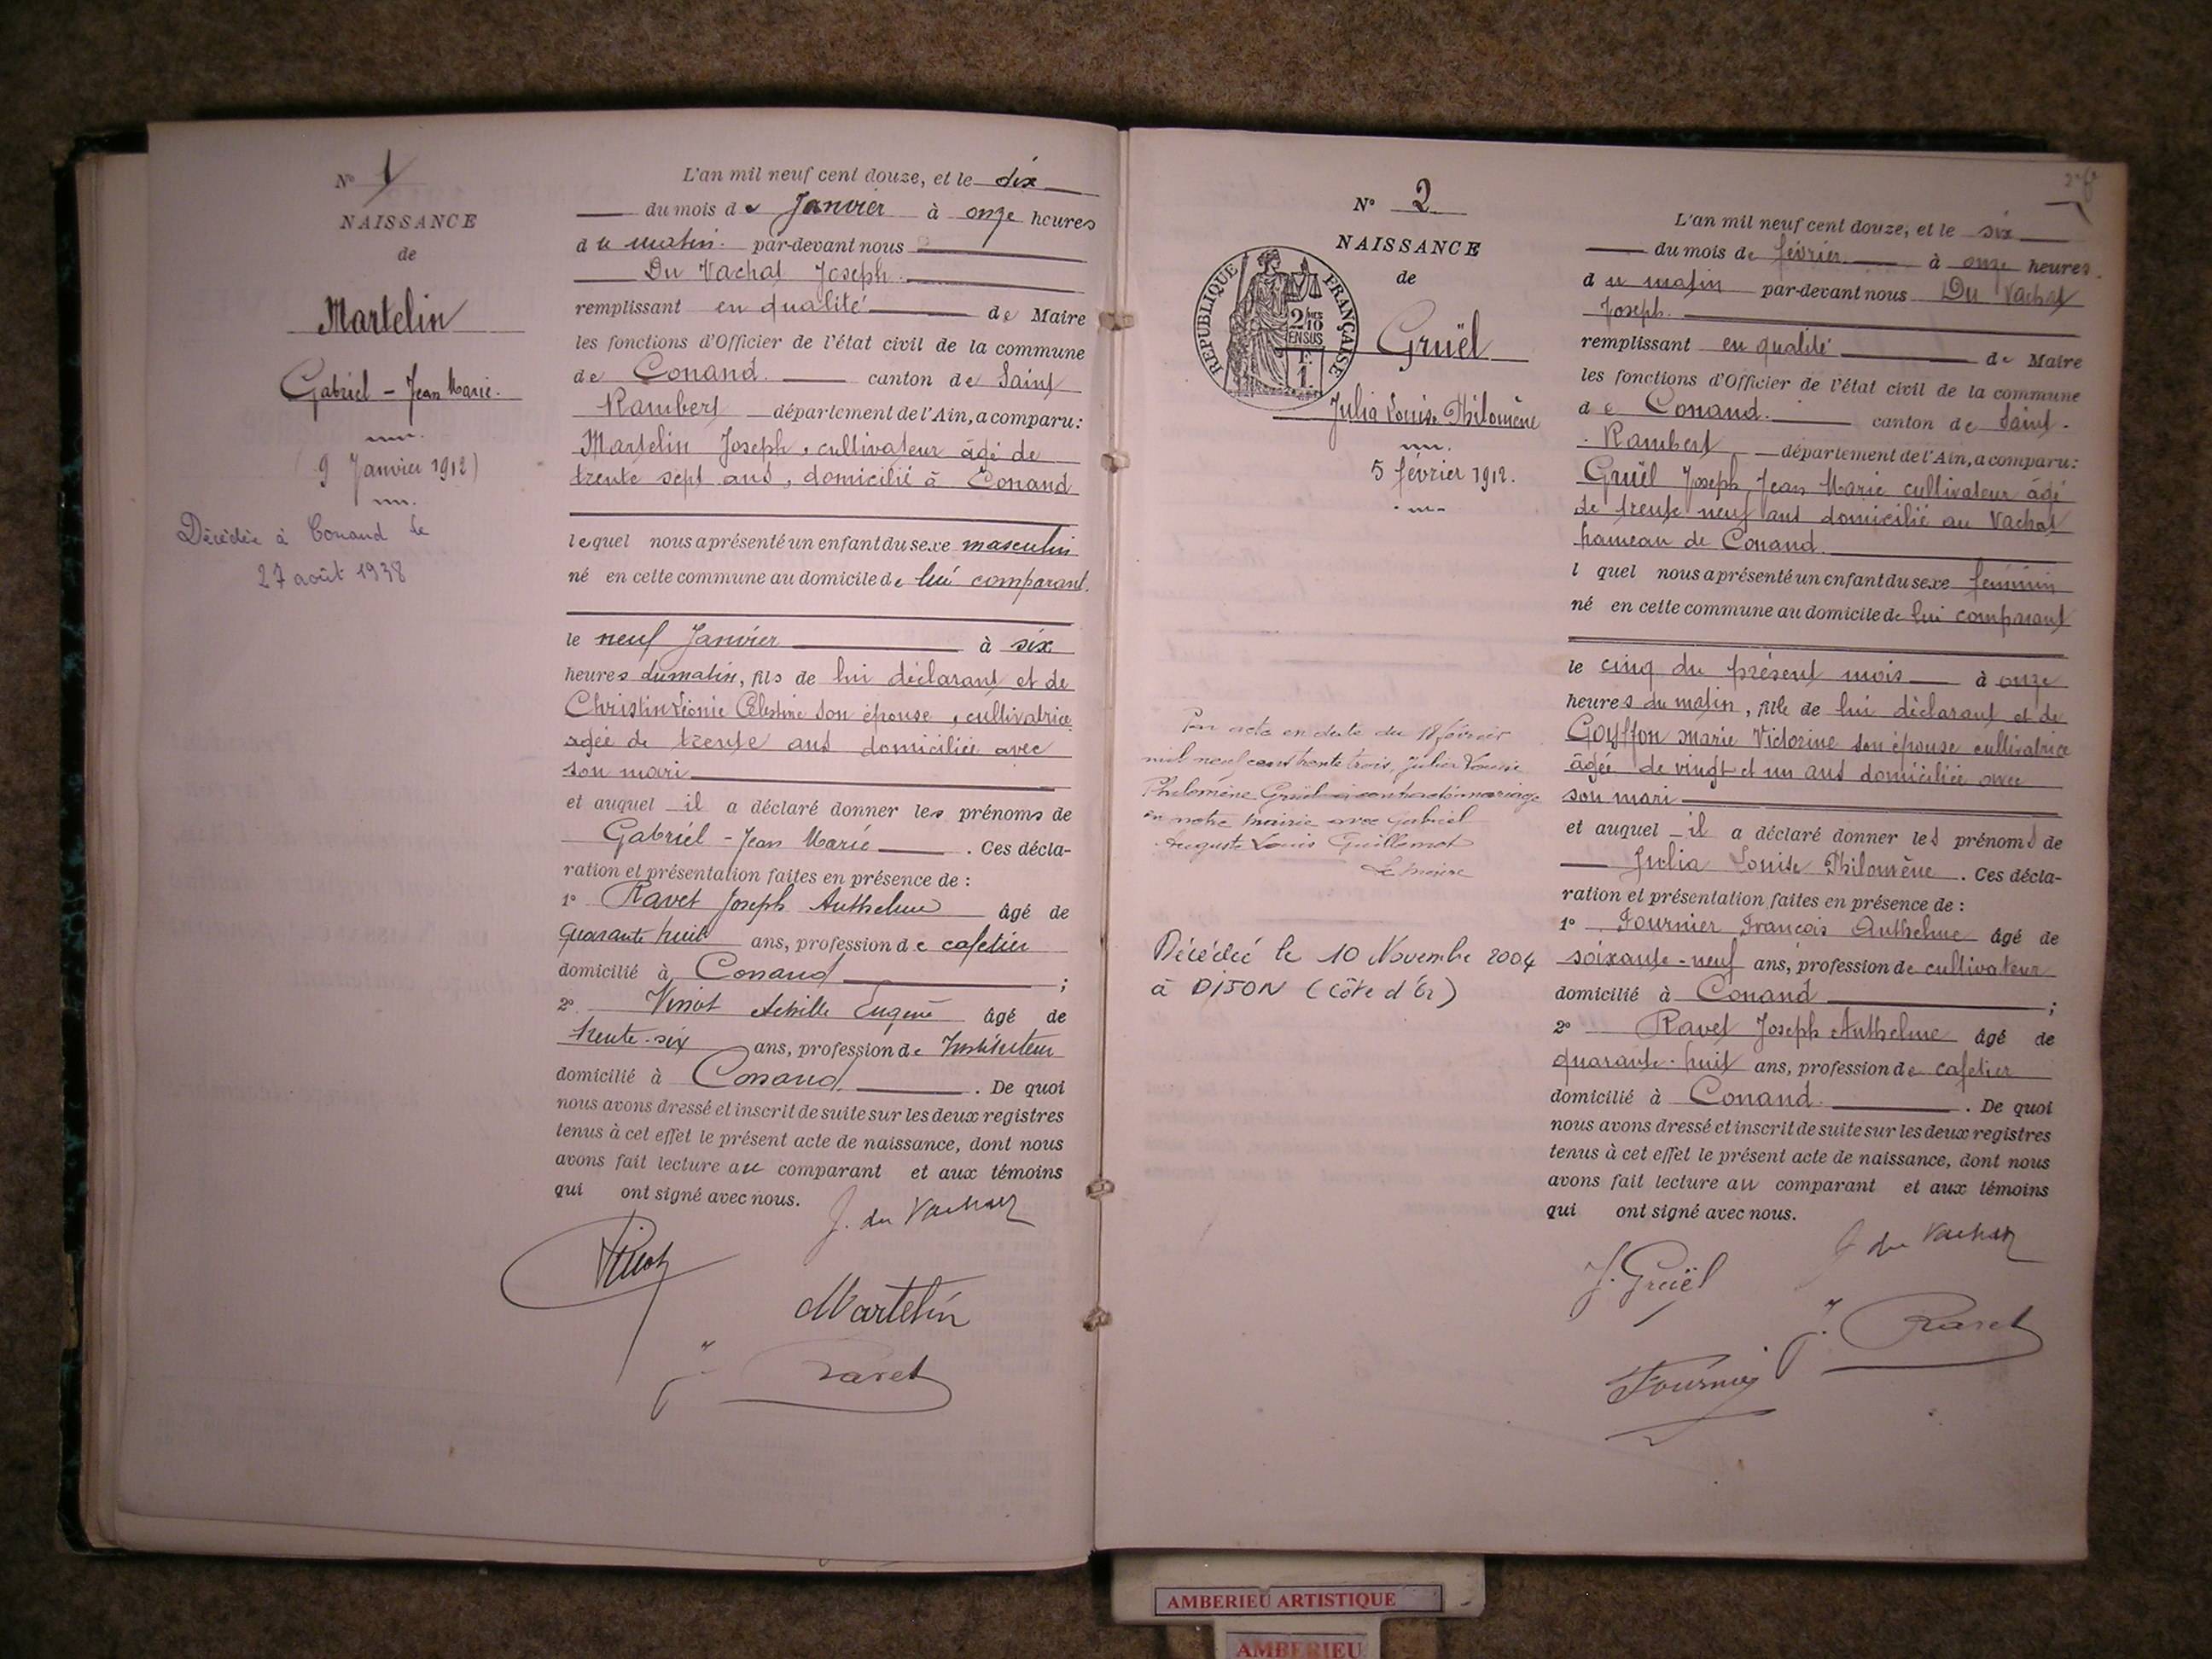 N° 1
NAISSANCE
de
Martelin
Gabriel - Jean Marie.
(9 Janvier 1912)
Décédée à Conand le
27 août 1938
L'an mil neuf cent douze, et le dix
du mois de Janvier à onze heures
du matin. par-devant nous
Du Vachat Joseph.
remplissant en qualité de Maire
les fonctions d'Officier de l'état civil de la commune
de Conand. canton de Saint
Rambert département de l'Ain, a comparu:
Martelin Joseph, cultivateur âgé de
trente sept ans, domicilié à Conand
lequel nous a présenté un enfant du sexe masculin
né en cette commune au domicile de lui comparant.
le neuf Janvier à six
heures du matin, fils de lui déclarant et de
Christin Léonie Célestine son épouse, cultivatrice
agée de trente ans domiciliée avec
son mari
et auquel il a déclaré donner les prénoms de
Gabriel - Jean Marie. Ces décla-
ration et présentation faites en présence de :
1° Ravet Joseph Anthelme âgé de
quarante huit ans, profession de cafetier
domicilié à Conand ;
2° Vinot Achille Eugène âgé de
trente-six ans, profession de Instituteur
domicilié à Conand. De quoi
nous avons dressé et inscrit de suite sur les deux registres
tenus à cet effet le présent acte de naissance, dont nous
avons fait lecture au comparant et aux témoins
qui ont signé avec nous.
J. du Vachat
Vinot
Martelin
J. Ravet
N° 2
NAISSANCE
de
RÉPUBLIQUE FRANÇAISE
2/10 EN SUS
1 F.
Gruël
Julia Louise Philomène
5 février 1912.
Par acte en date du 18 février
mil neuf cent trente trois, Julia Louise
Philomène Gruël a contracté mariage
en notre mairie avec Gabriel
Auguste Louis Guillemot
Le maire
Décédée le 10 Novembre 2004
à DIJON (Côte d'Or)
L'an mil neuf cent douze, et le six
du mois de février à onze heures.
du matin par-devant nous Du Vachat
Joseph.
remplissant en qualité de Maire
les fonctions d'Officier de l'état civil de la commune
de Conand. canton de Saint-
Rambert département de l'Ain, a comparu:
Gruël Joseph Jean Marie cultivateur âgé
de trente neuf ans domicilié au Vachat
hameau de Conand.
l quel nous a présenté un enfant du sexe féminin
né en cette commune au domicile de lui comparant
le cinq du présent mois à onze
heures du matin, fille de lui déclarant et de
Goyffon Marie Victorine son épouse cultivatrice
âgée de vingt et un ans domiciliée avec
son mari
et auquel il a déclaré donner les prénoms de
Julia Louise Philomène. Ces décla-
ration et présentation faites en présence de :
1° Fournier François Anthelme âgé de
soixante-neuf ans, profession de cultivateur
domicilié à Conand ;
2° Ravet Joseph Anthelme âgé de
quarante-huit ans, profession de cafetier
domicilié à Conand. De quoi
nous avons dressé et inscrit de suite sur les deux registres
tenus à cet effet le présent acte de naissance, dont nous
avons fait lecture au comparant et aux témoins
qui ont signé avec nous.
J. du Vachat
J. Gruël
J. Ravet
Fournier
AMBERIEU ARTISTIQUE
AMBERIEU